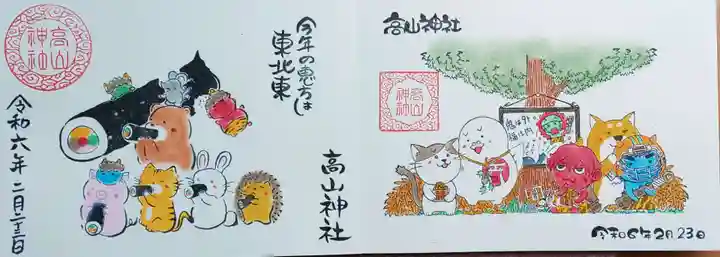 今年の恵方は
東北東
高山神社
高山神社
令和六年二月二十三日
高山神社
高山神社
鬼は外
福は内
令和6年2月23日